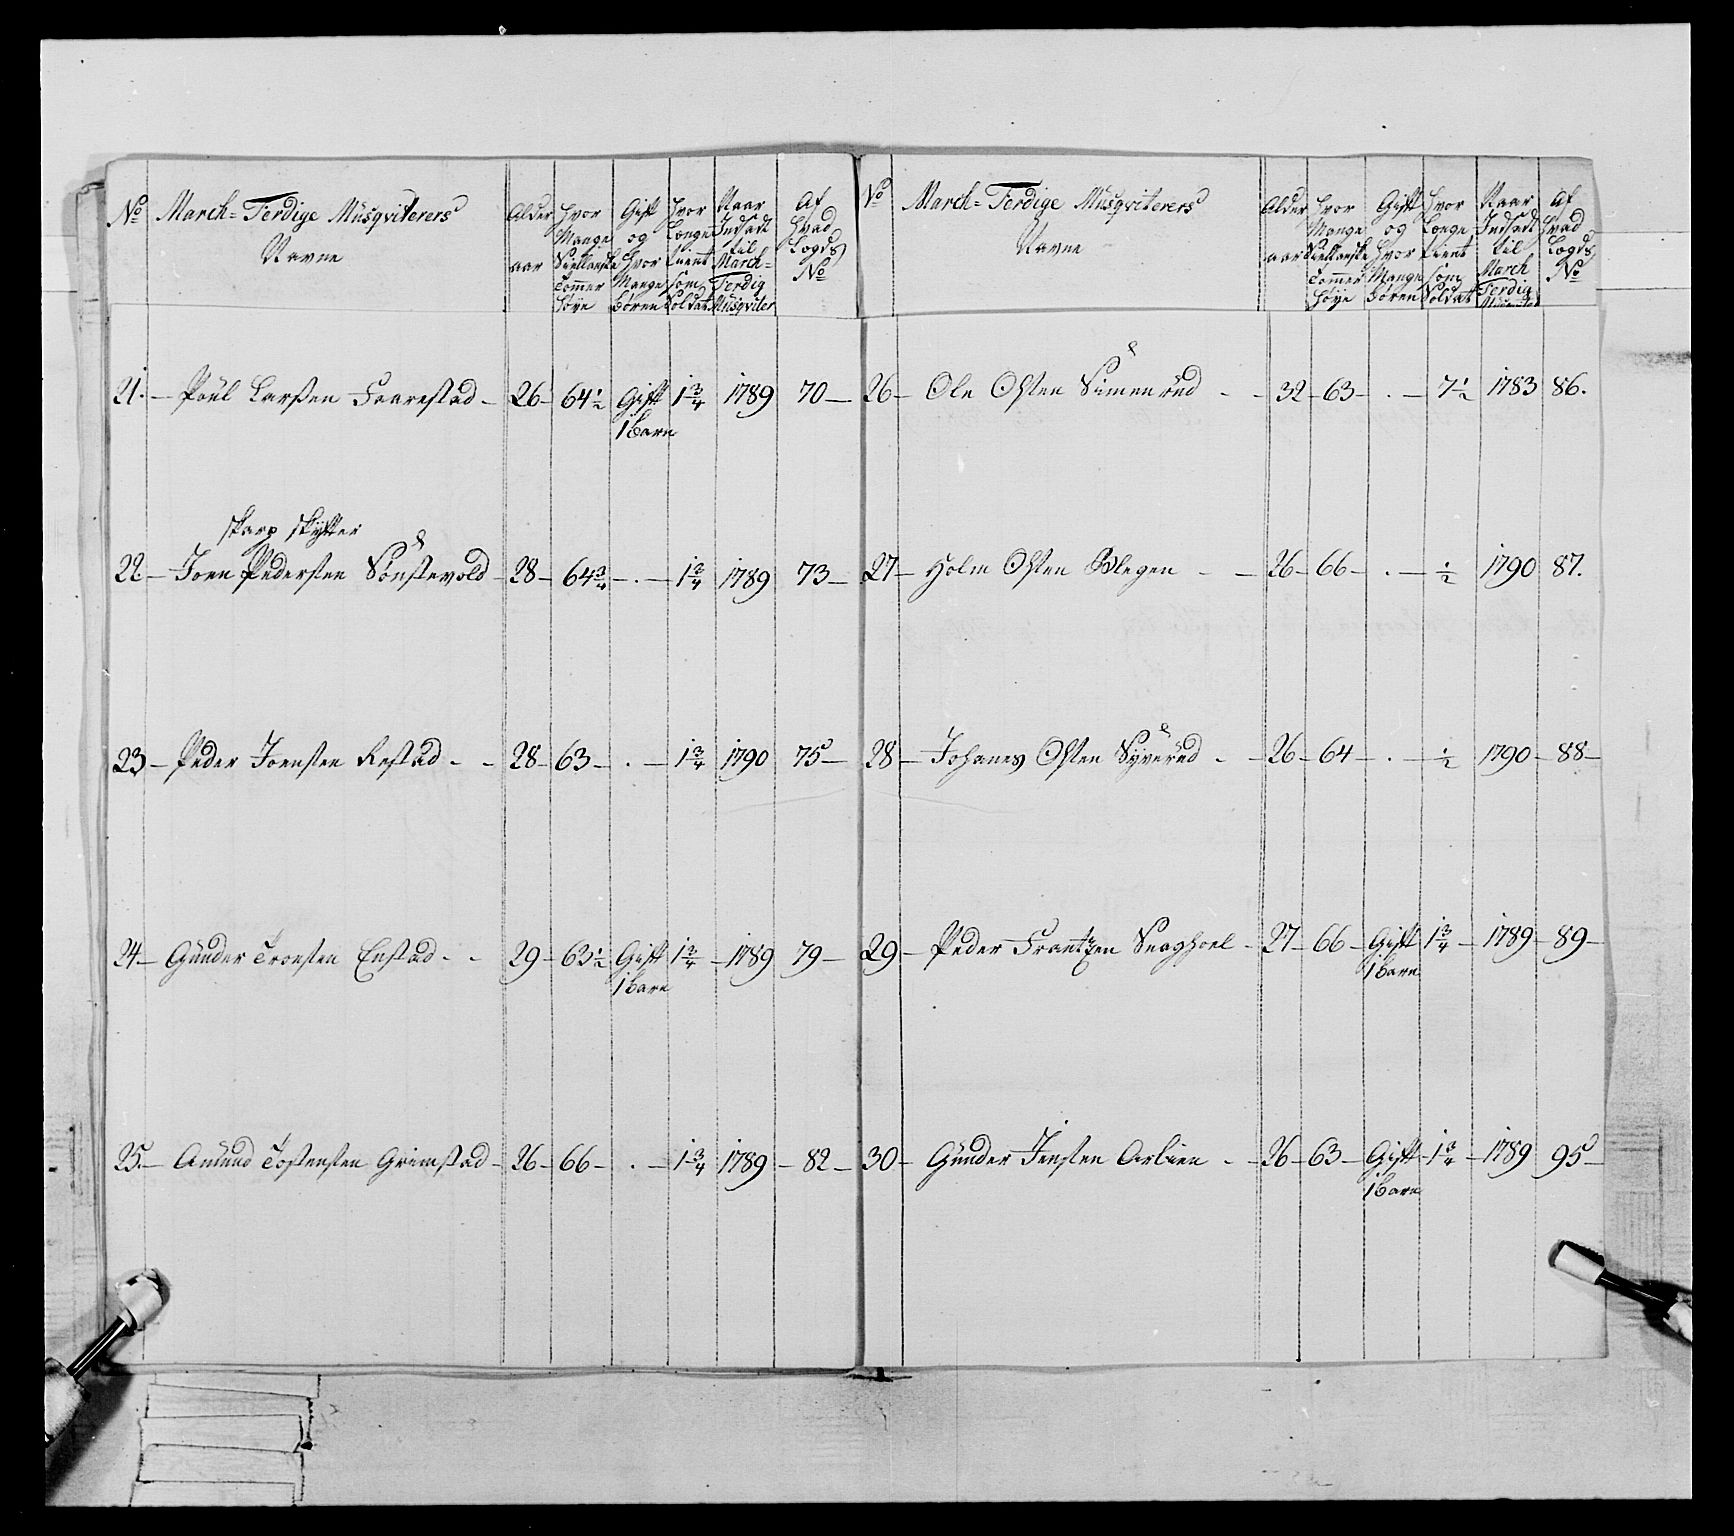 No March-Ferdige Musqviterers Navne
Alder aar
Hvor Mange Siellanske Tommer Høye
Gift og Hvor Mange Børen
Hvor Længe tient som Soldat
Naar Indsadt til March-Ferdig Musqviter
Af Hvad Logds No
21. Poül Larsen Faarestad 26 64½ Gift 1¾ 1789 70
1 Barn
skarp skytter
22 Joen Pedersen Sønstevold 28 64¾ . 1¾ 1789 73
23 Peder Joensen Restad 28 63 . 1¾ 1790 75
24 Günder Troensen Enstad 29 63½ Gift 1¾ 1789 79
1 Barn
25. Amünd Tostensen Grimstad 26 66 . 1¾ 1789 82
No March-Ferdige Musqviterers Navne
Alder aar
Hvor Mange Siellanske Tommer Høye
Gift og Hvor Mange Børen
Hvor Længe tient som Soldat
Naar Indsadt til March Ferdig
Af Hvad Logds No
26 Ole Olsen Simenrüd 32 63 . 7½ 1783 86.
27 Holm Olsen Blegen 26 66 . ½ 1790 87.
28 Johanes Olsen Syverüd 26 64 . ½ 1790 88
29 Peder Frantzen 27 66 Gift 1¾ 1789 89
1 Barn
30 Günder Jensen Arbien 26 63 Gift 1¾ 1789 95
1 Barn